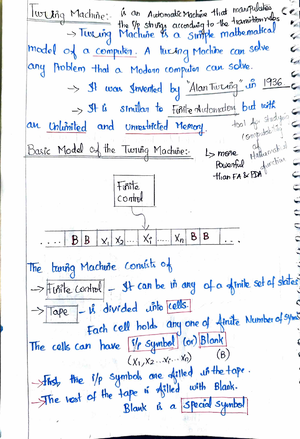 Turing Machine:- is an Automatic Machine that manipulates
the i/p strings according to the transition rules
→ Turing Machine is a simple mathematical
model of a computer. A turing Machine can solve
any Problem that a Modern computer can solve.
→ It was invented by "Alan Turing" in 1936
→ It is similar to Finite Automaton but with
an Unlimited and Unrestricted Memory.
tool for studying
computability
of
Mathematical
function
↳ more
Powerful
than FA & PDA
Basic Model of the Turing Machine:-
Finite
control
.... B B X₁ X₂ ... Xi .... Xn B B ...
The turing Machine consists of
→ Finite control - It can be in any of a finite set of states
→ Tape - is divided into cells.
Each cell holds any one of finite Number of
The cells can have i/p symbol (or) Blank
(X₁, X₂ ... Xi ... Xn) (B)
→ First, the i/p symbols are filled in the tape.
→ The rest of the tape is filled with Blank.
Blank is a special symbol